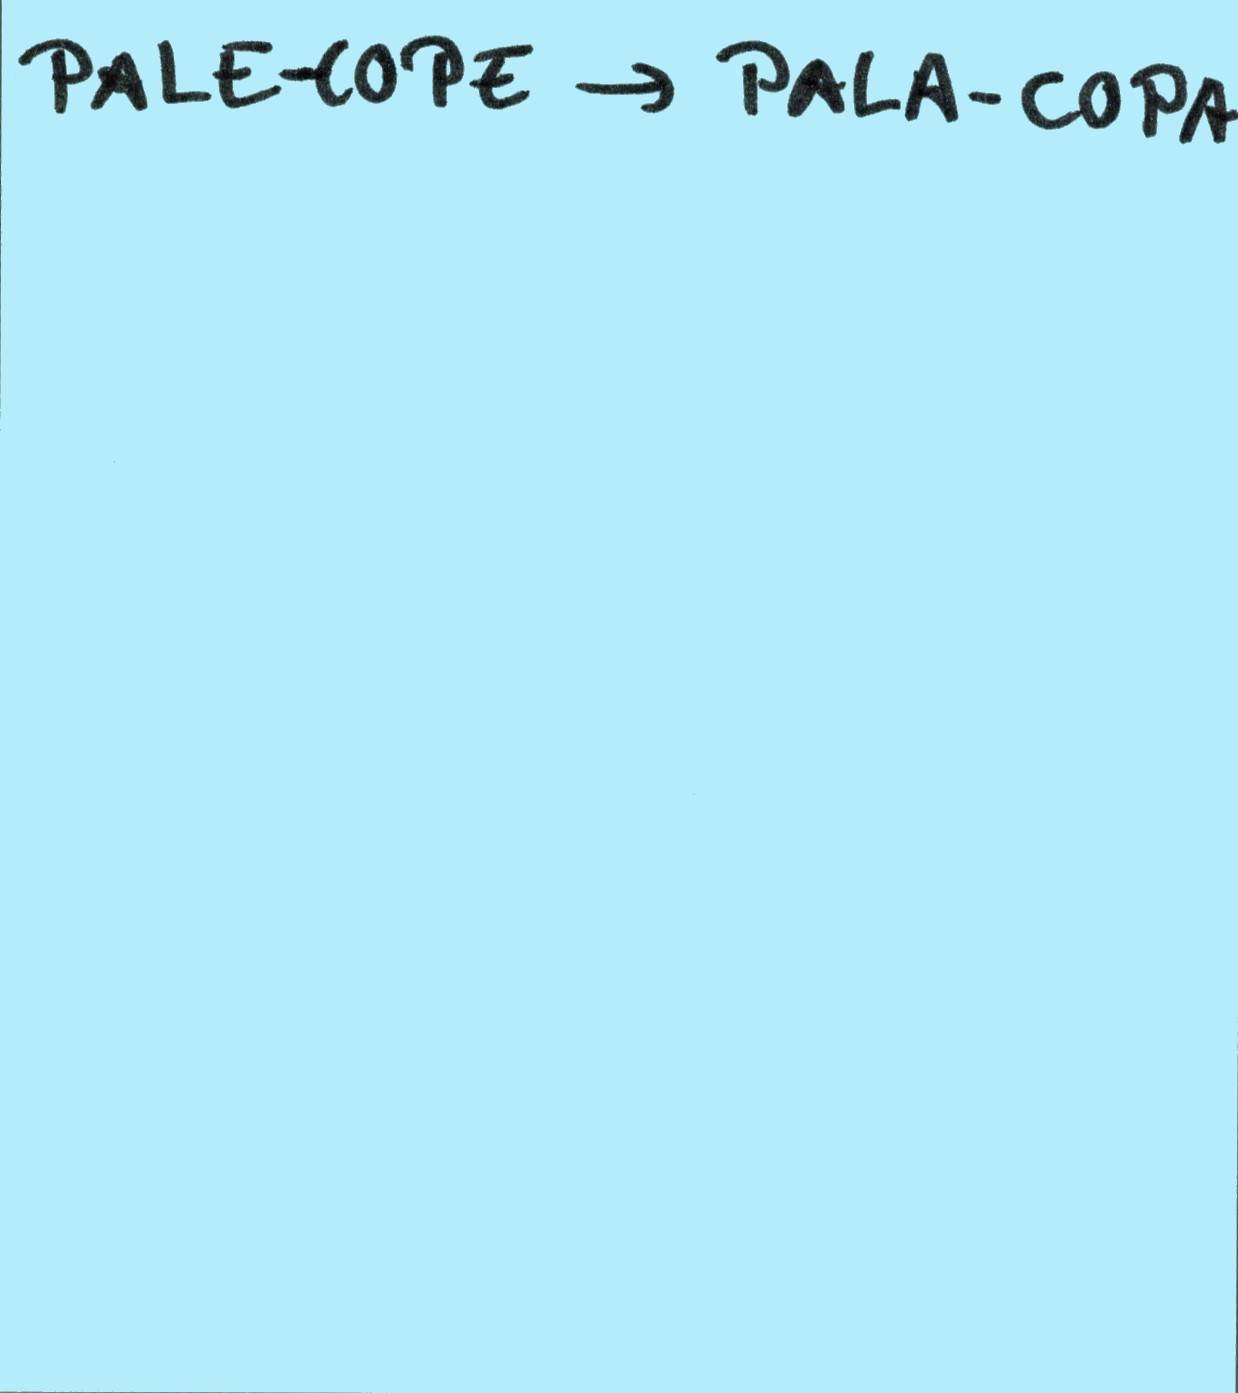 PALE-COPE → PALA-COPA